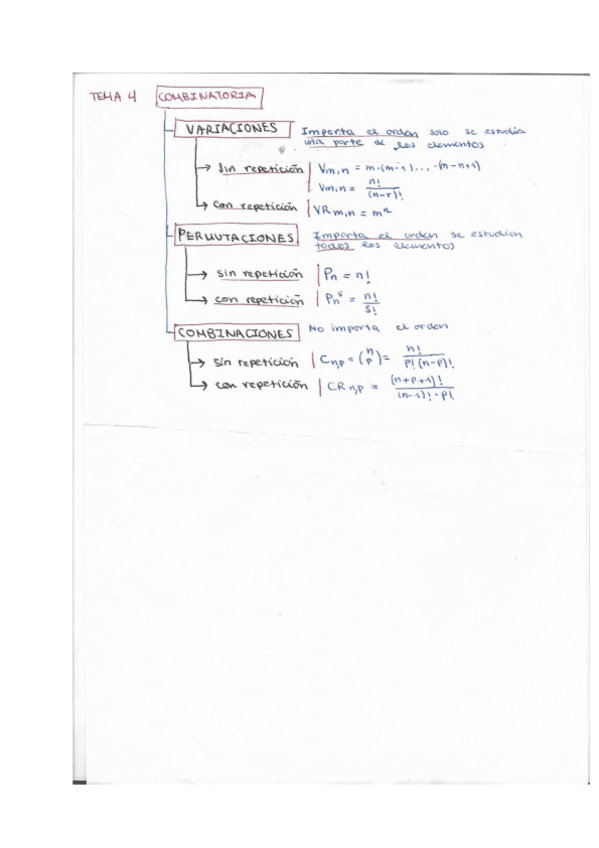 TEMA 4 COMBINATORIA
VARIACIONES Importa el orden solo se estudia
una parte de los elementos
→ sin repetición | Vm,n = m·(m-1)... ·(m-n+1)
Vm,n = n!/(n-r)!
→ con repetición | VR m,n = mⁿ
PERMUTACIONES Importa el orden se estudian
todos los elementos
→ sin repetición | Pn = n!
→ con repetición | Pnˢ = n!/s!
COMBINACIONES No importa el orden
→ sin repetición | Cn,p = (n p) = n!/p!(n-p)!
→ con repetición | CR n,p = (n+p+1)!/(n-1)!·p!